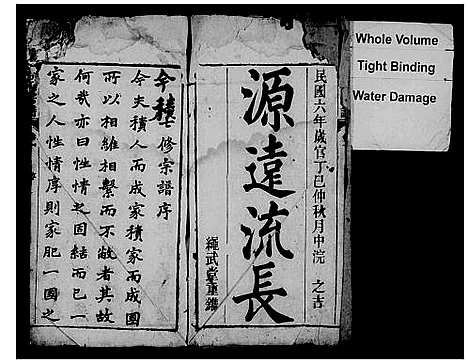 民國六年歲官丁巳仲秋月中浣 之吉
源遠流長
繩武堂重鐫
修宗譜序
今夫積人而成家積家而成國
所以相維相繫而不敝者其故
何哉亦曰性情之固結而已一
家之人性情序則家肥一國之
Whole Volume
Tight Binding
Water Damage